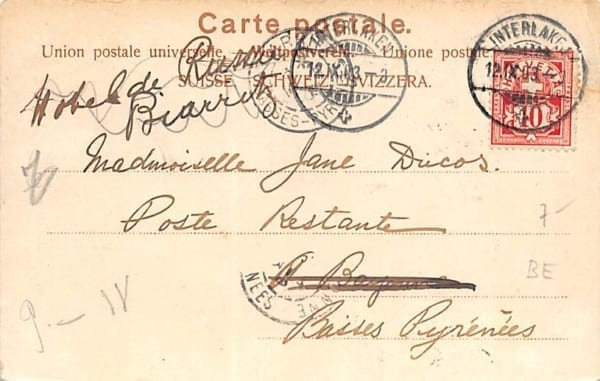 Carte postale.
Union postale universelle. Weltpostverein. Unione postale
SUISSE SCHWEIZ SVIZZERA.
INTERLAKEN
12.IX.03
INTERLAKEN
12.IX.03
HELVETIA
10
Hôtel de Russie
Biarritz
Madmoiselle Jane Ducos.
Poste Restante
7-
A Bayonne
BE
NEES
9 - IV
Basses Pyrénées